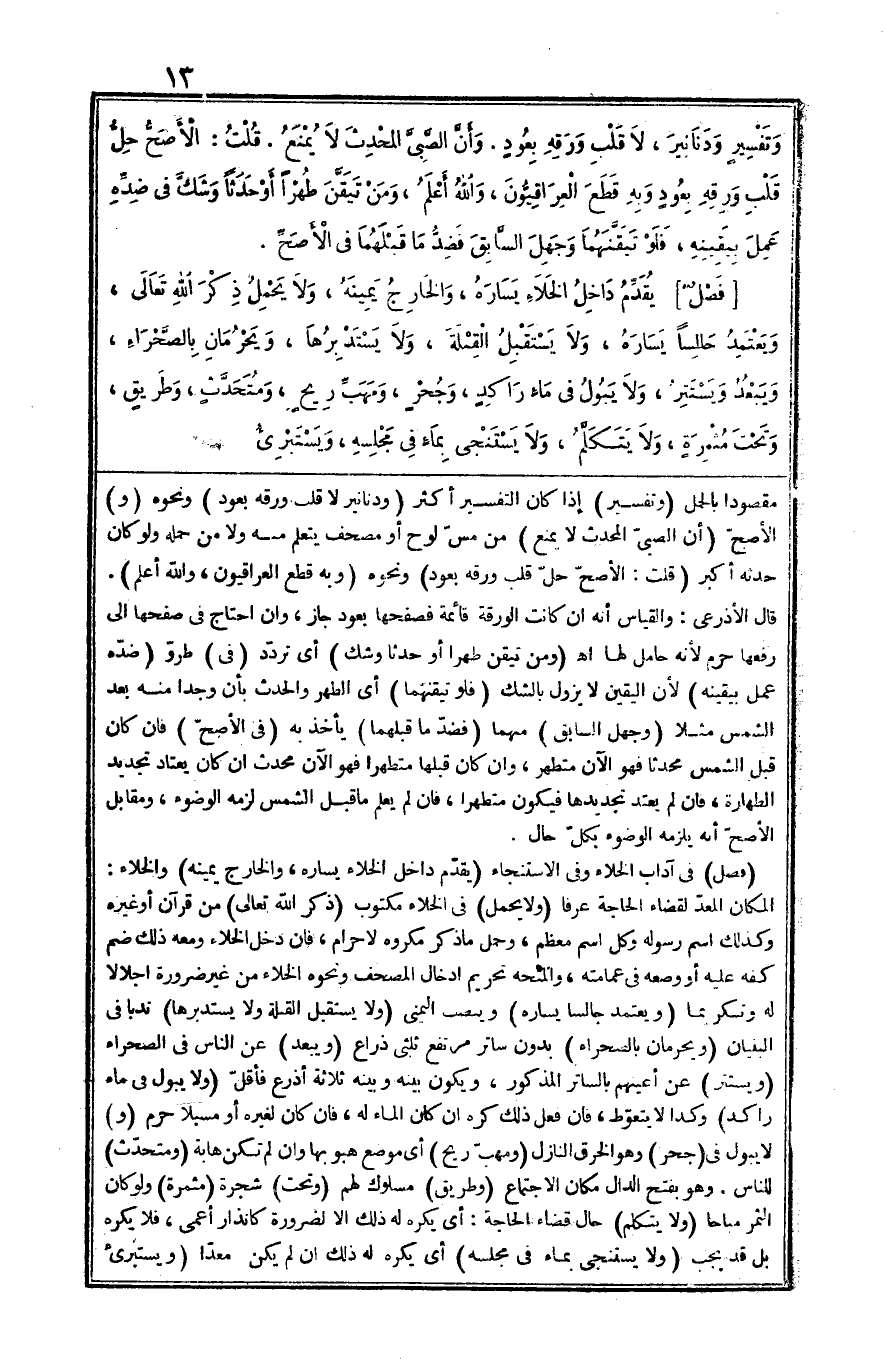 ١٣
وَتَفْسِيرٍ وَدَنَانِيرَ ، لَا قَلْبِ وَرَقِهِ بِعُودٍ . وَأَنَّ الصَّبِىَّ الْمُحْدِثَ لَا يُمْنَعُ . قُلْتُ : الْأَصَحُّ حِلُّ
قَلْبِ وَرِقِهِ بِعُودٍ وَبِهِ قَطَعَ الْعِرَاقِيُّونَ ، وَاللهُ أَعْلَمُ ، وَمَنْ تَيَقَّنَ طُهْرًا أَوْ حَدَثًا وَشَكَّ فى ضِدِّهِ
عَمِلَ بِيَقِينِهِ ، فَلَوْ تَيَقَّنَهُمَا وَجَهِلَ السَّابِقَ فَضِدُّ مَا قَبْلَهُمَا فى الْأَصَحِّ .
[ فَصْلٌ ] يُقَدِّمُ دَاخِلُ الخَلَاءِ يَسَارَهُ ، وَالخَارِجُ يَمِينَهُ ، وَلَا يَحْمِلُ ذِكْرَ اللهِ تَعَالَى ،
وَيَعْتَمِدُ جَالِساً يَسَارَهُ ، وَلَا يَسْتَقْبِلُ الْقِبْلَةَ ، وَلَا يَسْتَدْبِرُهَا ، وَيَحْرُمَانِ بِالصَّحْرَاءِ ،
وَيَبْعُدُ وَيَسْتَتِرُ ، وَلَا يَبُولُ فى مَاءٍ رَاكِدٍ ، وَجُحْرٍ ، وَمَهَبِّ رِيحٍ ، وَمُتَحَدَّثٍ ، وَطَرِيقٍ ،
وَتَحْتَ مُثْمِرَةٍ ، وَلَا يَتَكَلَّمُ ، وَلَا يَسْتَنْجِى بِمَاءٍ فِى مَجْلِسِهِ ، وَيَسْتَبْرِئُ
مقصودا بالحمل (وتفسير) إذا كان التفسير أكثر (ودنانير لا قلب ورقه بعود) ونحوه (و)
الأصحّ (أن الصبىّ المحدث لا يمنع) من مسّ لوح أو مصحف يتعلم منه ولا من حمله ولو كان
حدثه أكبر (قلت : الأصحّ حلّ قلب ورقه بعود) ونحوه (وبه قطع العراقيون ، والله أعلم) .
قال الأذرعى : والقياس أنه ان كانت الورقة قائمة فصفحها بعود جاز ، وان احتاج فى صفحها الى
رفعها حرم لأنه حامل لها اه (ومن تيقن طهرا أو حدثا وشك) أى تردّد (فى) طروّ (ضدّه
عمل بيقينه) لأن اليقين لا يزول بالشك (فلو تيقنهما) أى الطهر والحدث بأن وجدا منه بعد
الشمس مثلا (وجهل السابق) منهما (فضدّ ما قبلهما) يأخذ به (فى الأصحّ) فان كان
قبل الشمس محدثا فهو الآن متطهر ، وان كان قبلها متطهرا فهو الآن محدث ان كان يعتاد تجديد
الطهارة ، فان لم يعتد تجديدها فيكون متطهرا ، فان لم يعلم ماقبل الشمس لزمه الوضوء ، ومقابل
الأصحّ أنه يلزمه الوضوء بكلّ حال .
(فصل) فى آداب الخلاء وفى الاستنجاء (يقدّم داخل الخلاء يساره ، والخارج يمينه) والخلاء :
المكان المعدّ لقضاء الحاجة عرفا (ولايحمل) فى الخلاء مكتوب (ذكر الله تعالى) من قرآن أوغيره
وكذلك اسم رسوله وكل اسم معظم ، وحمل ماذكر مكروه لاحرام ، فان دخل الخلاء ومعه ذلك ضم
كفه عليه أو وضعه فى عمامته ، والمتجه تحريم ادخال المصحف ونحوه الخلاء من غيرضرورة اجلالا
له وتكريما (ويعتمد جالسا يساره) وينصب اليمنى (ولا يستقبل القبلة ولا يستدبرها) ندبا فى
البنيان (ويحرمان بالصحراء) بدون ساتر مرتفع ثلثى ذراع (ويبعد) عن الناس فى الصحراء
(ويستتر) عن أعينهم بالساتر المذكور ، ويكون بينه وبينه ثلاثة أذرع فأقلّ (ولا يبول فى ماء
راكد) وكذا لا يتغوّط ، فان فعل ذلك كره ان كان الماء له ، فان كان لغيره أو مسبلا حرم (و)
لايبول فى (جحر) وهو الخرق النازل (ومهبّ ريح) أى موضع هبوبها وان لم تكن هابة (ومتحدّث)
للناس . وهو بفتح الدال مكان الاجتماع (وطريق) مسلوك لهم (وتحت) شجرة (مثمرة) ولوكان
الثمر مباحا (ولا يتكلم) حال قضاء الحاجة : أى يكره له ذلك الا لضرورة كانذار أعمى ، فلا يكره
بل قد يجب (ولا يستنجى بماء فى مجلسه) أى يكره له ذلك ان لم يكن معدّا (ويستبرئ